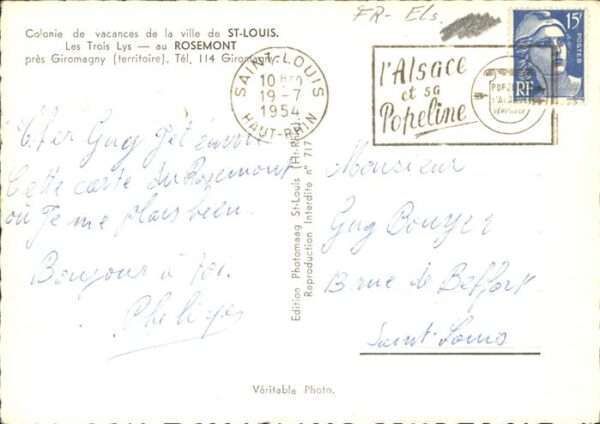 Colonie de vacances de la ville de ST-LOUIS.
Les Trois Lys — au ROSEMONT
près Giromagny (territoire). Tél. 114 Giromagny.
FR- Els.
15F
POSTES
RF
SAINT-LOUIS
10H
19-7
1954
HAUT-RHIN
l'Alsace
et sa
Popeline
Cher Guy
Cette carte du Rosemont
où Je me plais bien.
Bonjour à toi.
Edition Photomaag St-Louis (Ht-Rh
Reproduction Interdite n° 717
Monsieur
Guy
rue de Belfort
Saint-Louis
Véritable Photo.